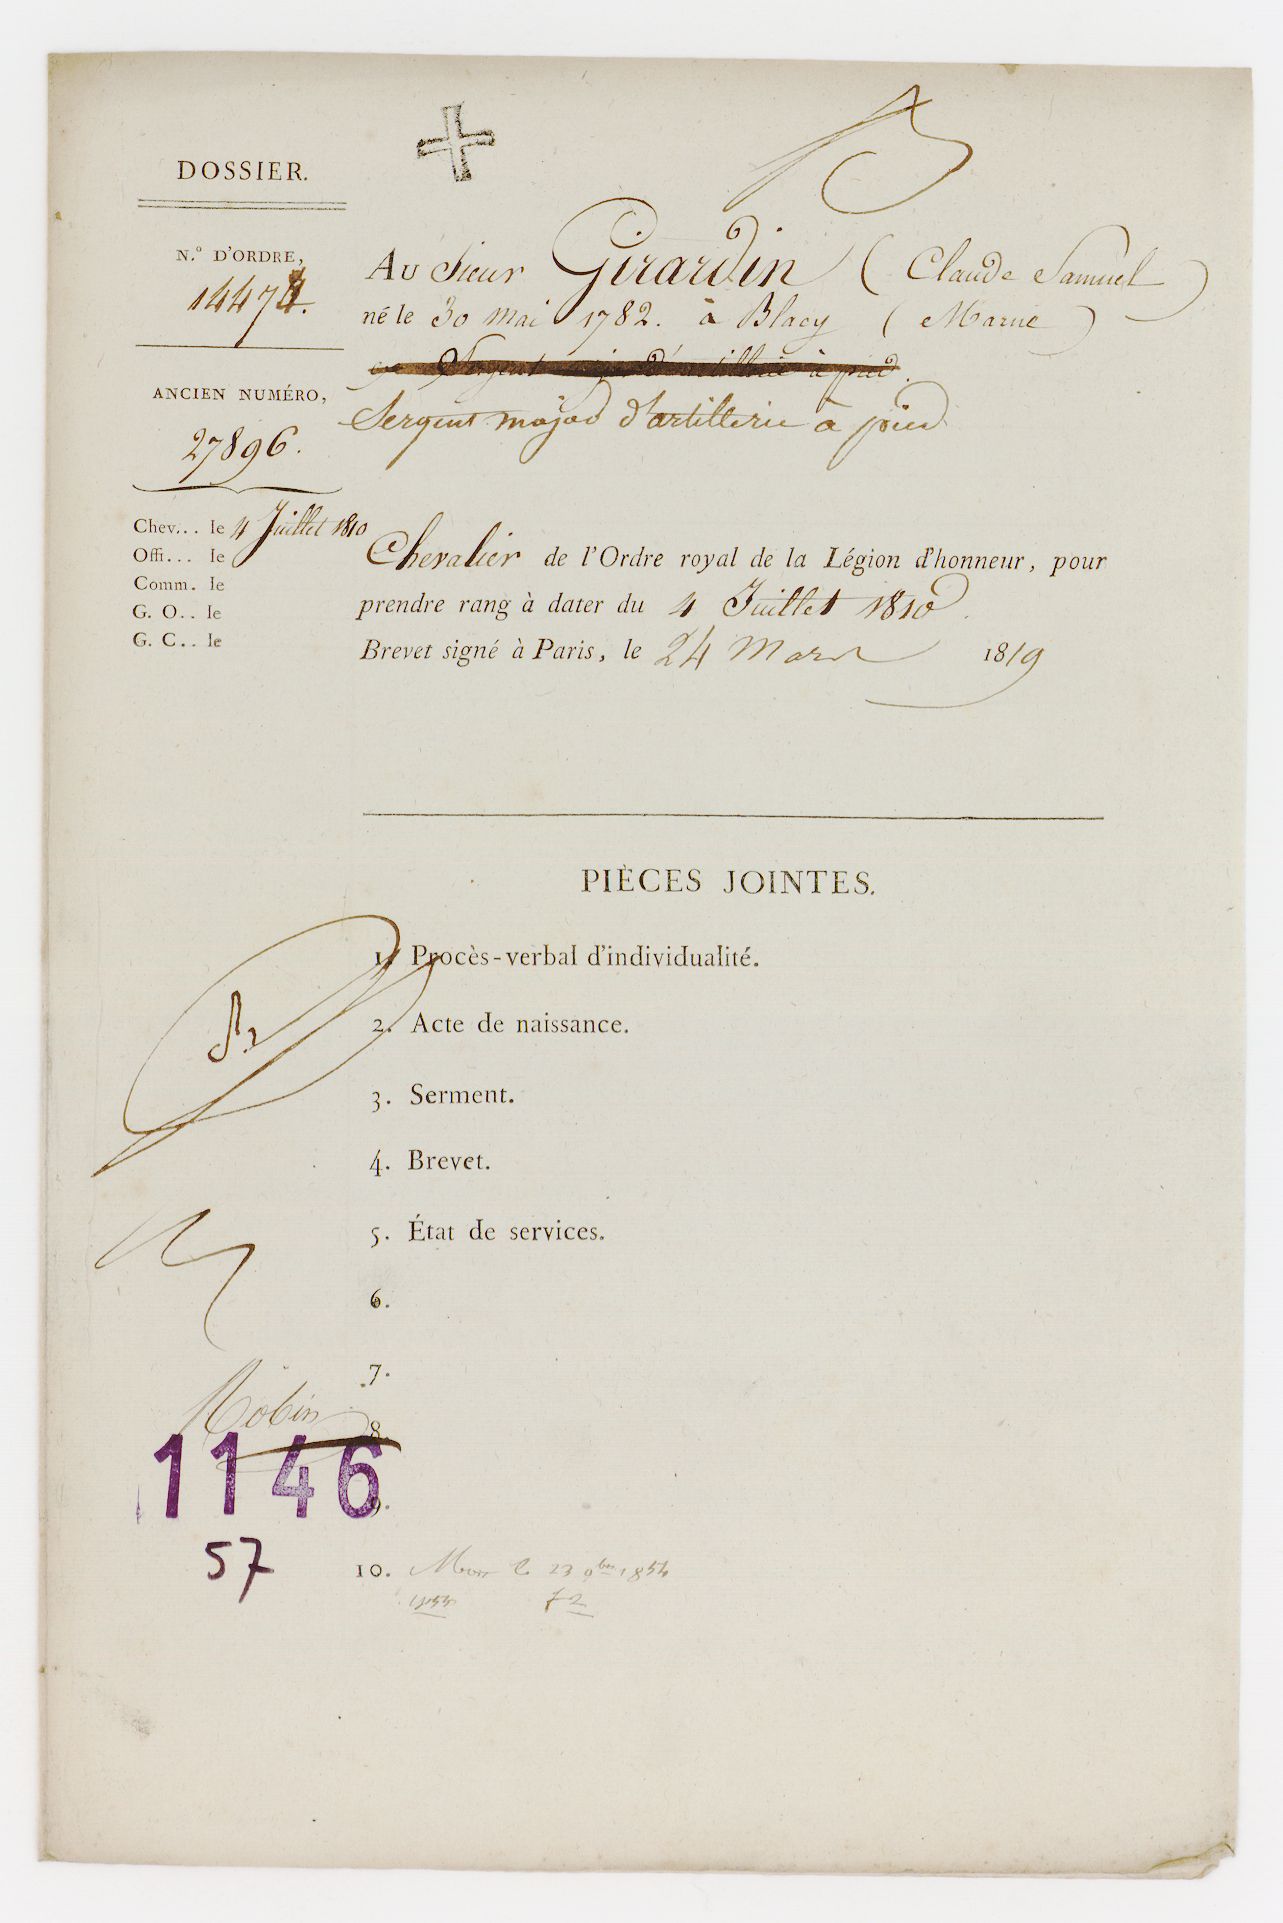 DOSSIER.
N.° D'ORDRE,
14474.
ANCIEN NUMÉRO,
27896.
Chev... le 4 Juillet 1810
Offi... le
Comm. le
G. O.. le
G. C.. le
Au Sieur Girardin (Claude Samuel)
né le 30 mai 1782. à Blacy (Marne)
Sergent major d'artillerie à pied.
Sergent major d'artillerie à pied
Chevalier de l'Ordre royal de la Légion d'honneur, pour
prendre rang à dater du 4 Juillet 1810.
Brevet signé à Paris, le 24 Mars 1819
PIÈCES JOINTES.
1. Procès-verbal d'individualité.
2. Acte de naissance.
3. Serment.
4. Brevet.
5. État de services.
6.
7.
Robin
8.
1146
9.
57
10. Mort le 23 9bre 1854
72